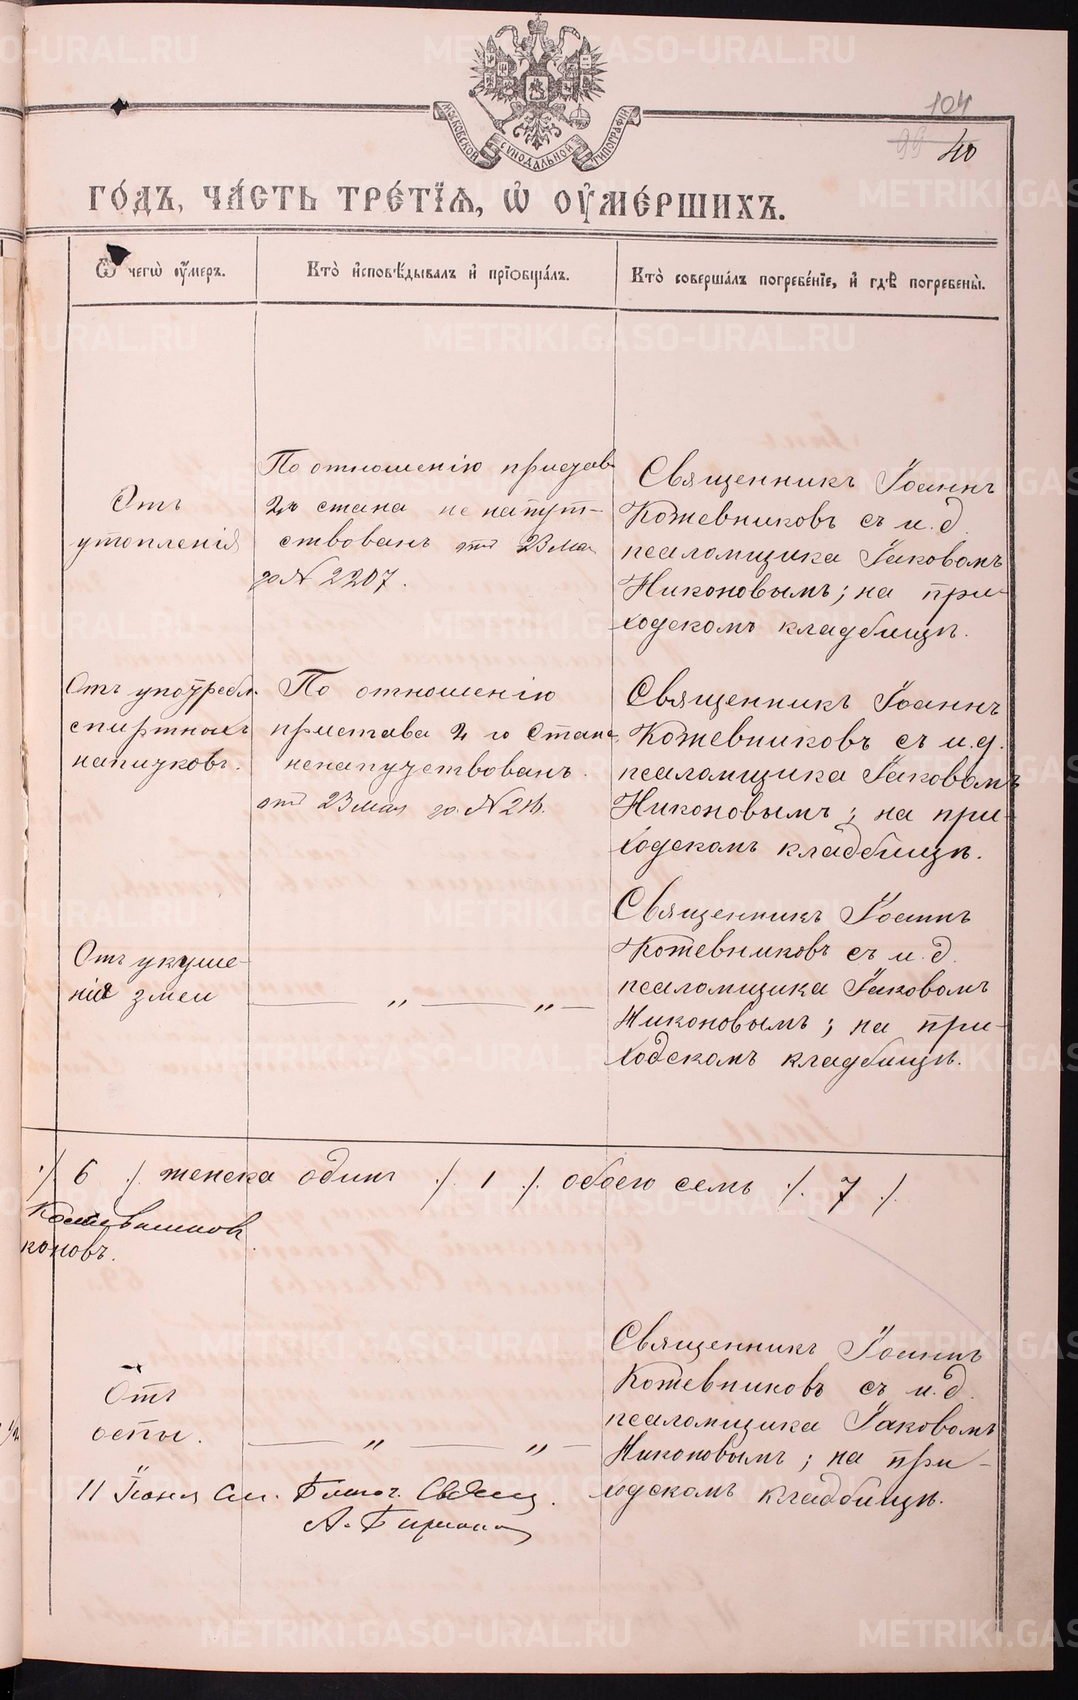 МОСКОВСКОЙ СѴНОДАЛЬНОЙ ТИПОГРАФІИ
104
99 40
ГО́ДЪ, ЧА́СТЬ ТРЕ́ТІѦ, Ѡ҆ ОУ҆МЕ́РШИХЪ.
Ѿ чегѡ̀ оу҆́меръ.
Кто̀ и҆сповѣ́дывалъ и҆ прїѻбща́лъ.
Кто̀ соверша́лъ погребе́нїе, и҆ гдѣ̀ погребены̀.
Отъ
утопленія
По отношенію пристав
2го стана не напут-
ствованъ отъ 23 мая
за № 2207.
Священникъ Іоаннъ
Кожевниковъ съ и.д.
псаломщика Іаковомъ
Никоновымъ; на при-
ходскомъ кладбищѣ.
Отъ употребл.
спиртныхъ
напитковъ.
По отношенію
пристава 2 го Стана
ненапутствованъ.
отъ 23 мая за №
Священникъ Іоаннъ
Кожевниковъ съ и.д.
псаломщика Іаковомъ
Никоновымъ; на при-
ходскомъ кладбищѣ.
Отъ укуше-
нія змеи
— „ — „ —
Священникъ Іоаннъ
Кожевниковъ съ и.д.
псаломщика Іаковомъ
Никоновымъ; на при-
ходскомъ кладбищѣ.
./. 6 ./. женска одинъ ./. 1 ./. обоего семь ./. 7 ./.
Кожевников
коновъ.
Отъ
оспы.
— „ — „ —
Священникъ Іоаннъ
Кожевниковъ съ и.д.
псаломщика Іаковомъ
Никоновымъ; на при-
ходскомъ кладбищѣ.
11 Іюня См. Благоч. Свящ.
METRIKI.GASO-URAL.RU